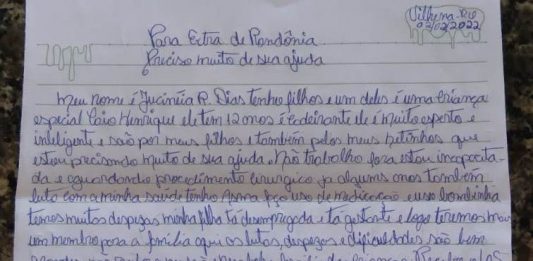 Vilhena-RO
02/02/2022
Para Extra de Rondônia
Preciso muito de sua ajuda
Meu nome é Jucinéia R. Dias tenho filhos e um deles é uma criança
especial Caio Henrique ele têm 12 anos é cadeirante ele é muito esperto e
inteligente e são por meus filhos e também pelos meus netinhos que
estou precisando muito de sua ajuda. Não trabalho fora estou incapacita-
da e aguardando procedimento cirurgico ja alguns anos também
luto com a minha saúde tenho Asma faço uso de medicação, e uso bombinha
temos muitas despezas minha filha tá desempregada e tá gestante e logo teremos mais
um membro para a família aqui as lutas, despezas e dificuldades são bem